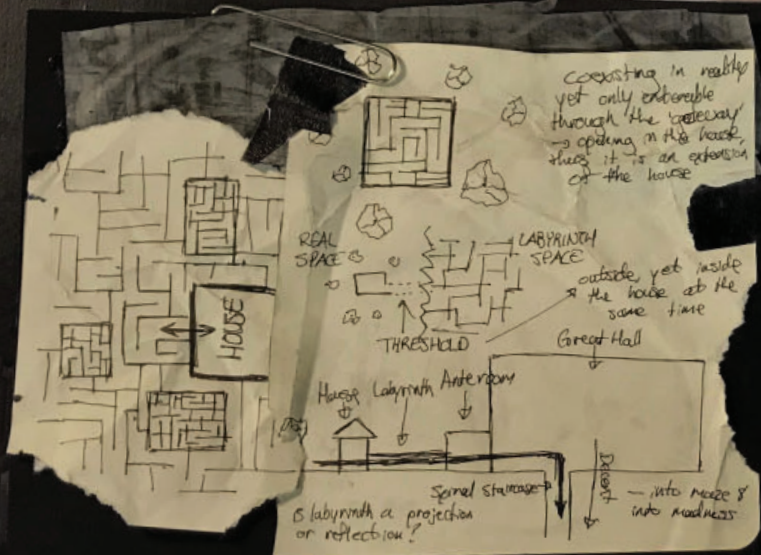 coexisting in reality
yet only enterable
through the 'gateway'
→ opening in the house,
thus it is an extension
of the house
REAL
SPACE
LABYRINTH
SPACE
THRESHOLD
outside, yet inside
the house at the
same time
HOUSE
Great Hall
House
Labyrinth
Anteroom
Spiral Staircase
Descent
— into maze &
into madness
Is labyrinth a projection
or reflection?